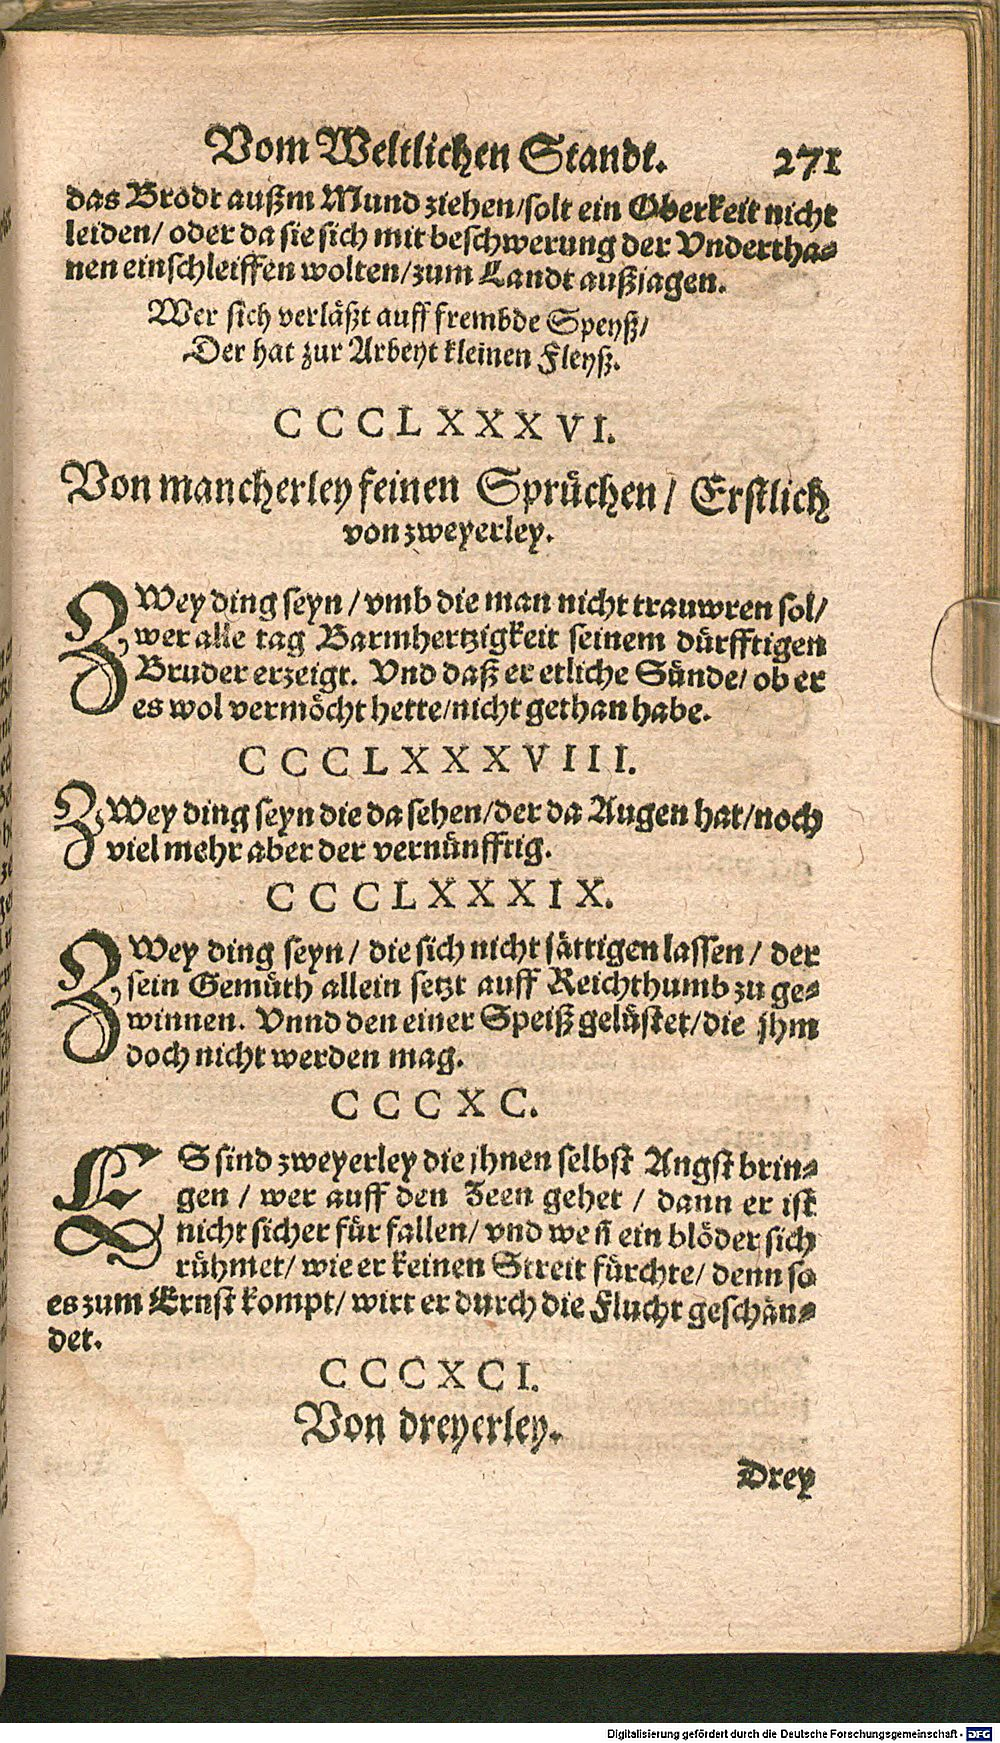 Vom Weltlichen Standt. 271
das Brodt außm Mund ziehen/solt ein Oberkeit nicht
leiden/ oder da sie sich mit beschwerung der Vndertha-
nen einschleiffen wolten/zum Landt außjagen.
Wer sich verläßt auff frembde Speyß/
Der hat zur Arbeyt kleinen Fleyß.
CCCLXXXVI.
Von mancherley feinen Sprüchen/ Erstlich
von zweyerley.
ZWey ding seyn/vmb die man nicht trauwren sol/
wer alle tag Barmhertzigkeit seinem dürfftigen
Bruder erzeigt. Vnd daß er etliche Sünde/ ob er
es wol vermöcht hette/nicht gethan habe.
CCCLXXXVIII.
ZWey ding seyn die da sehen/der da Augen hat/noch
viel mehr aber der vernünfftig.
CCCLXXXIX.
ZWey ding seyn/ die sich nicht sättigen lassen/ der
sein Gemüth allein setzt auff Reichthumb zu ge-
winnen. Vnnd den einer Speiß gelüstet/die jhm
doch nicht werden mag.
CCCXC.
ES sind zweyerley die jhnen selbst Angst brin-
gen/ wer auff den Zeen gehet/ dann er ist
nicht sicher für fallen/ vnd weñ ein blöder sich
rühmet/ wie er keinen Streit fürchte/ denn so
es zum Ernst kompt/ wirt er durch die Flucht geschän-
det.
CCCXCI.
Von dreyerley.
Drey
Digitalisierung gefördert durch die Deutsche Forschungsgemeinschaft - DFG